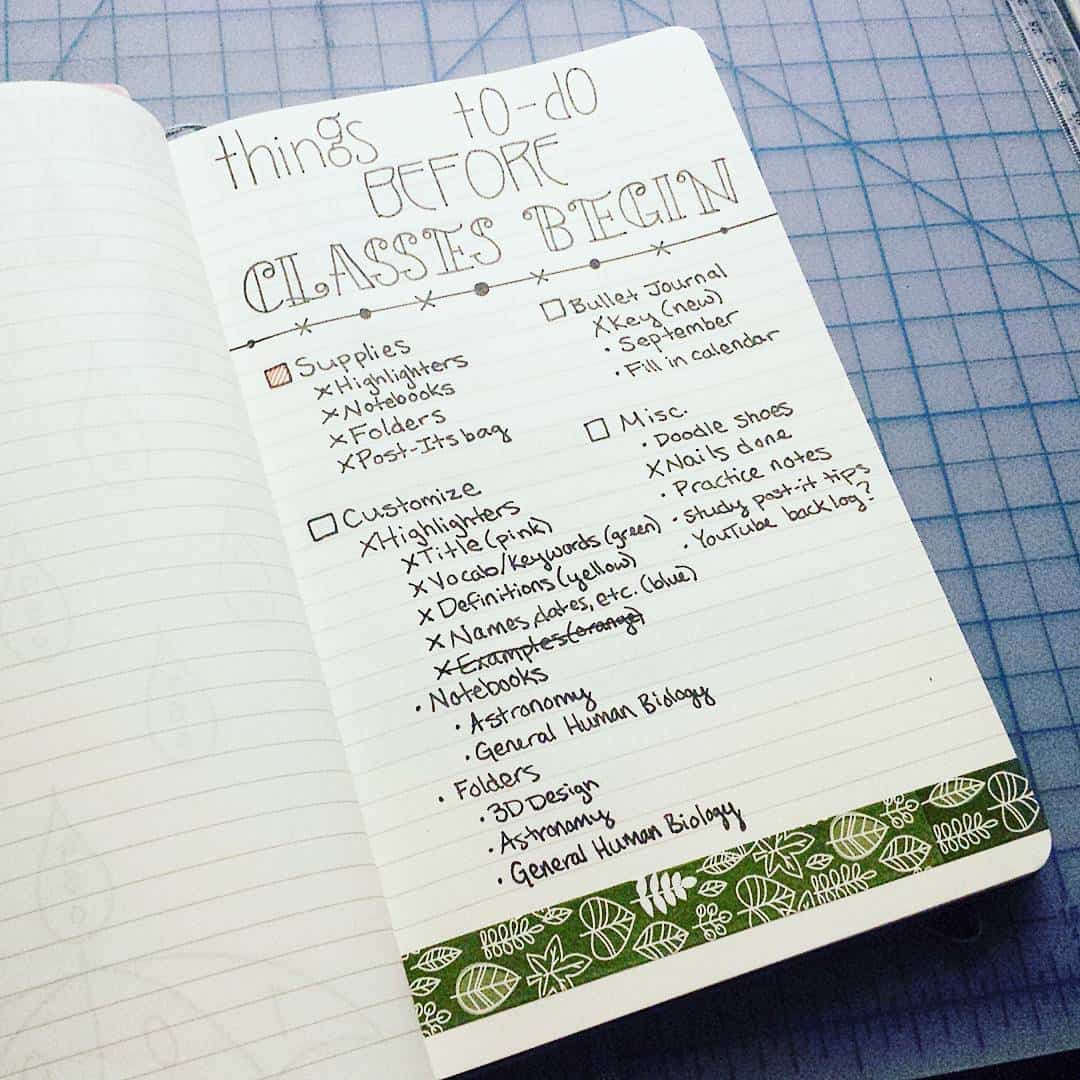 things to-do
BEFORE
CLASSES BEGIN
Supplies
x Highlighters
x Notebooks
x Folders
x Post-Its bag
Customize
x Highlighters
x Title (pink)
x Vocab/keywords (green)
x Definitions (yellow)
x Names, dates, etc. (blue)
x Examples (orange)
• Notebooks
• Astronomy
• General Human Biology
• Folders
• 3D Design
• Astronomy
• General Human Biology
Bullet Journal
x Key (new)
• September
• Fill in calendar
Misc.
• Doodle shoes
x Nails done
• Practice notes
• Study post-it tips
• YouTube backlog?